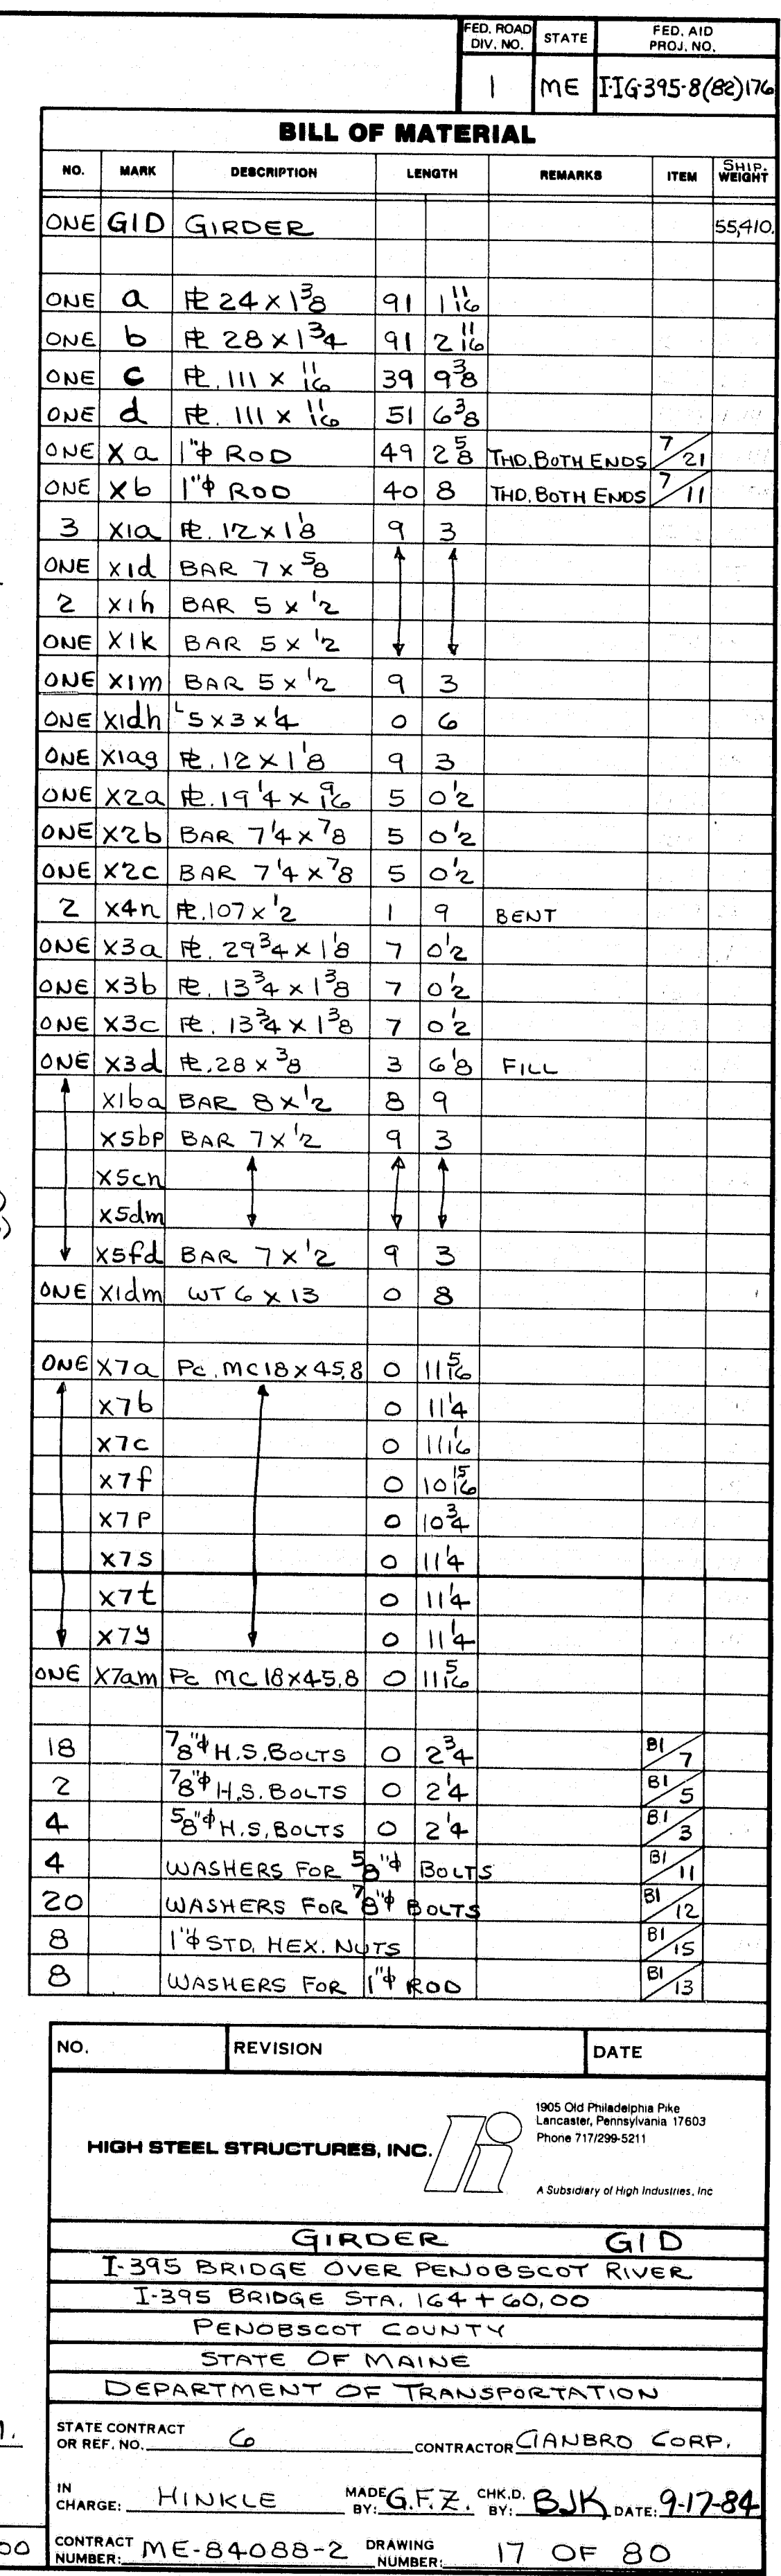 FED. ROAD DIV. NO. STATE FED. AID PROJ. NO.
1 ME I-IG-395-8(82)176
BILL OF MATERIAL
NO. MARK DESCRIPTION LENGTH REMARKS ITEM SHIP. WEIGHT
ONE G1D GIRDER 55,410.
ONE a PL 24 x 1 3/8 91 1 11/16
ONE b PL 28 x 1 3/4 91 2 11/16
ONE c PL. 111 x 11/16 39 9 3/8
ONE d PL. 111 x 11/16 51 6 3/8
ONE Xa 1"φ ROD 49 2 5/8 THD. BOTH ENDS 7/21
ONE Xb 1"φ ROD 40 8 THD. BOTH ENDS 7/11
3 X1a PL. 12 x 1 1/8 9 3
ONE X1d BAR 7 x 5/8
2 X1h BAR 5 x 1/2
ONE X1k BAR 5 x 1/2
ONE X1m BAR 5 x 1/2 9 3
ONE X1dh L 5 x 3 x 1/4 0 6
ONE X1ag PL. 12 x 1 1/8 9 3
ONE X2a PL. 19 1/4 x 9/16 5 0 1/2
ONE X2b BAR 7 1/4 x 7/8 5 0 1/2
ONE X2c BAR 7 1/4 x 7/8 5 0 1/2
2 X4n PL. 107 x 1/2 1 9 BENT
ONE X3a PL. 29 3/4 x 1 1/8 7 0 1/2
ONE X3b PL. 13 3/4 x 1 3/8 7 0 1/2
ONE X3c PL. 13 3/4 x 1 3/8 7 0 1/2
ONE X3d PL. 28 x 3/8 3 6 1/8 FILL
X1ba BAR 8 x 1/2 8 9
X5bp BAR 7 x 1/2 9 3
X5cn
X5dm
X5fd BAR 7 x 1/2 9 3
ONE X1dm WT 6 x 13 0 8
ONE X7a Pc. MC18 x 45.8 0 11 5/16
X7b 0 11 1/4
X7c 0 11 1/16
X7f 0 10 15/16
X7p 0 10 3/4
X7s 0 11 1/4
X7t 0 11 1/4
X7y 0 11 1/4
ONE X7am Pc MC 18 x 45.8 0 11 5/16
18 7/8"φ H.S. BOLTS 0 2 3/4 B1/7
2 7/8"φ H.S. BOLTS 0 2 1/4 B1/5
4 5/8"φ H.S. BOLTS 0 2 1/4 B1/3
4 WASHERS FOR 5/8"φ BOLTS B1/11
20 WASHERS FOR 7/8"φ BOLTS B1/12
8 1"φ STD. HEX. NUTS B1/15
8 WASHERS FOR 1"φ ROD B1/13
NO. REVISION DATE
HIGH STEEL STRUCTURES, INC.
1905 Old Philadelphia Pike
Lancaster, Pennsylvania 17603
Phone 717/299-5211
A Subsidiary of High Industries, Inc
GIRDER G1D
I-395 BRIDGE OVER PENOBSCOT RIVER
I-395 BRIDGE STA. 164 + 60.00
PENOBSCOT COUNTY
STATE OF MAINE
DEPARTMENT OF TRANSPORTATION
STATE CONTRACT OR REF. NO. 6 CONTRACTOR CIANBRO CORP.
IN CHARGE: HINKLE MADE BY: G.F.Z. CHK.D. BY: BJK DATE: 9-17-84
CONTRACT NUMBER: ME-84088-2 DRAWING NUMBER: 17 OF 80